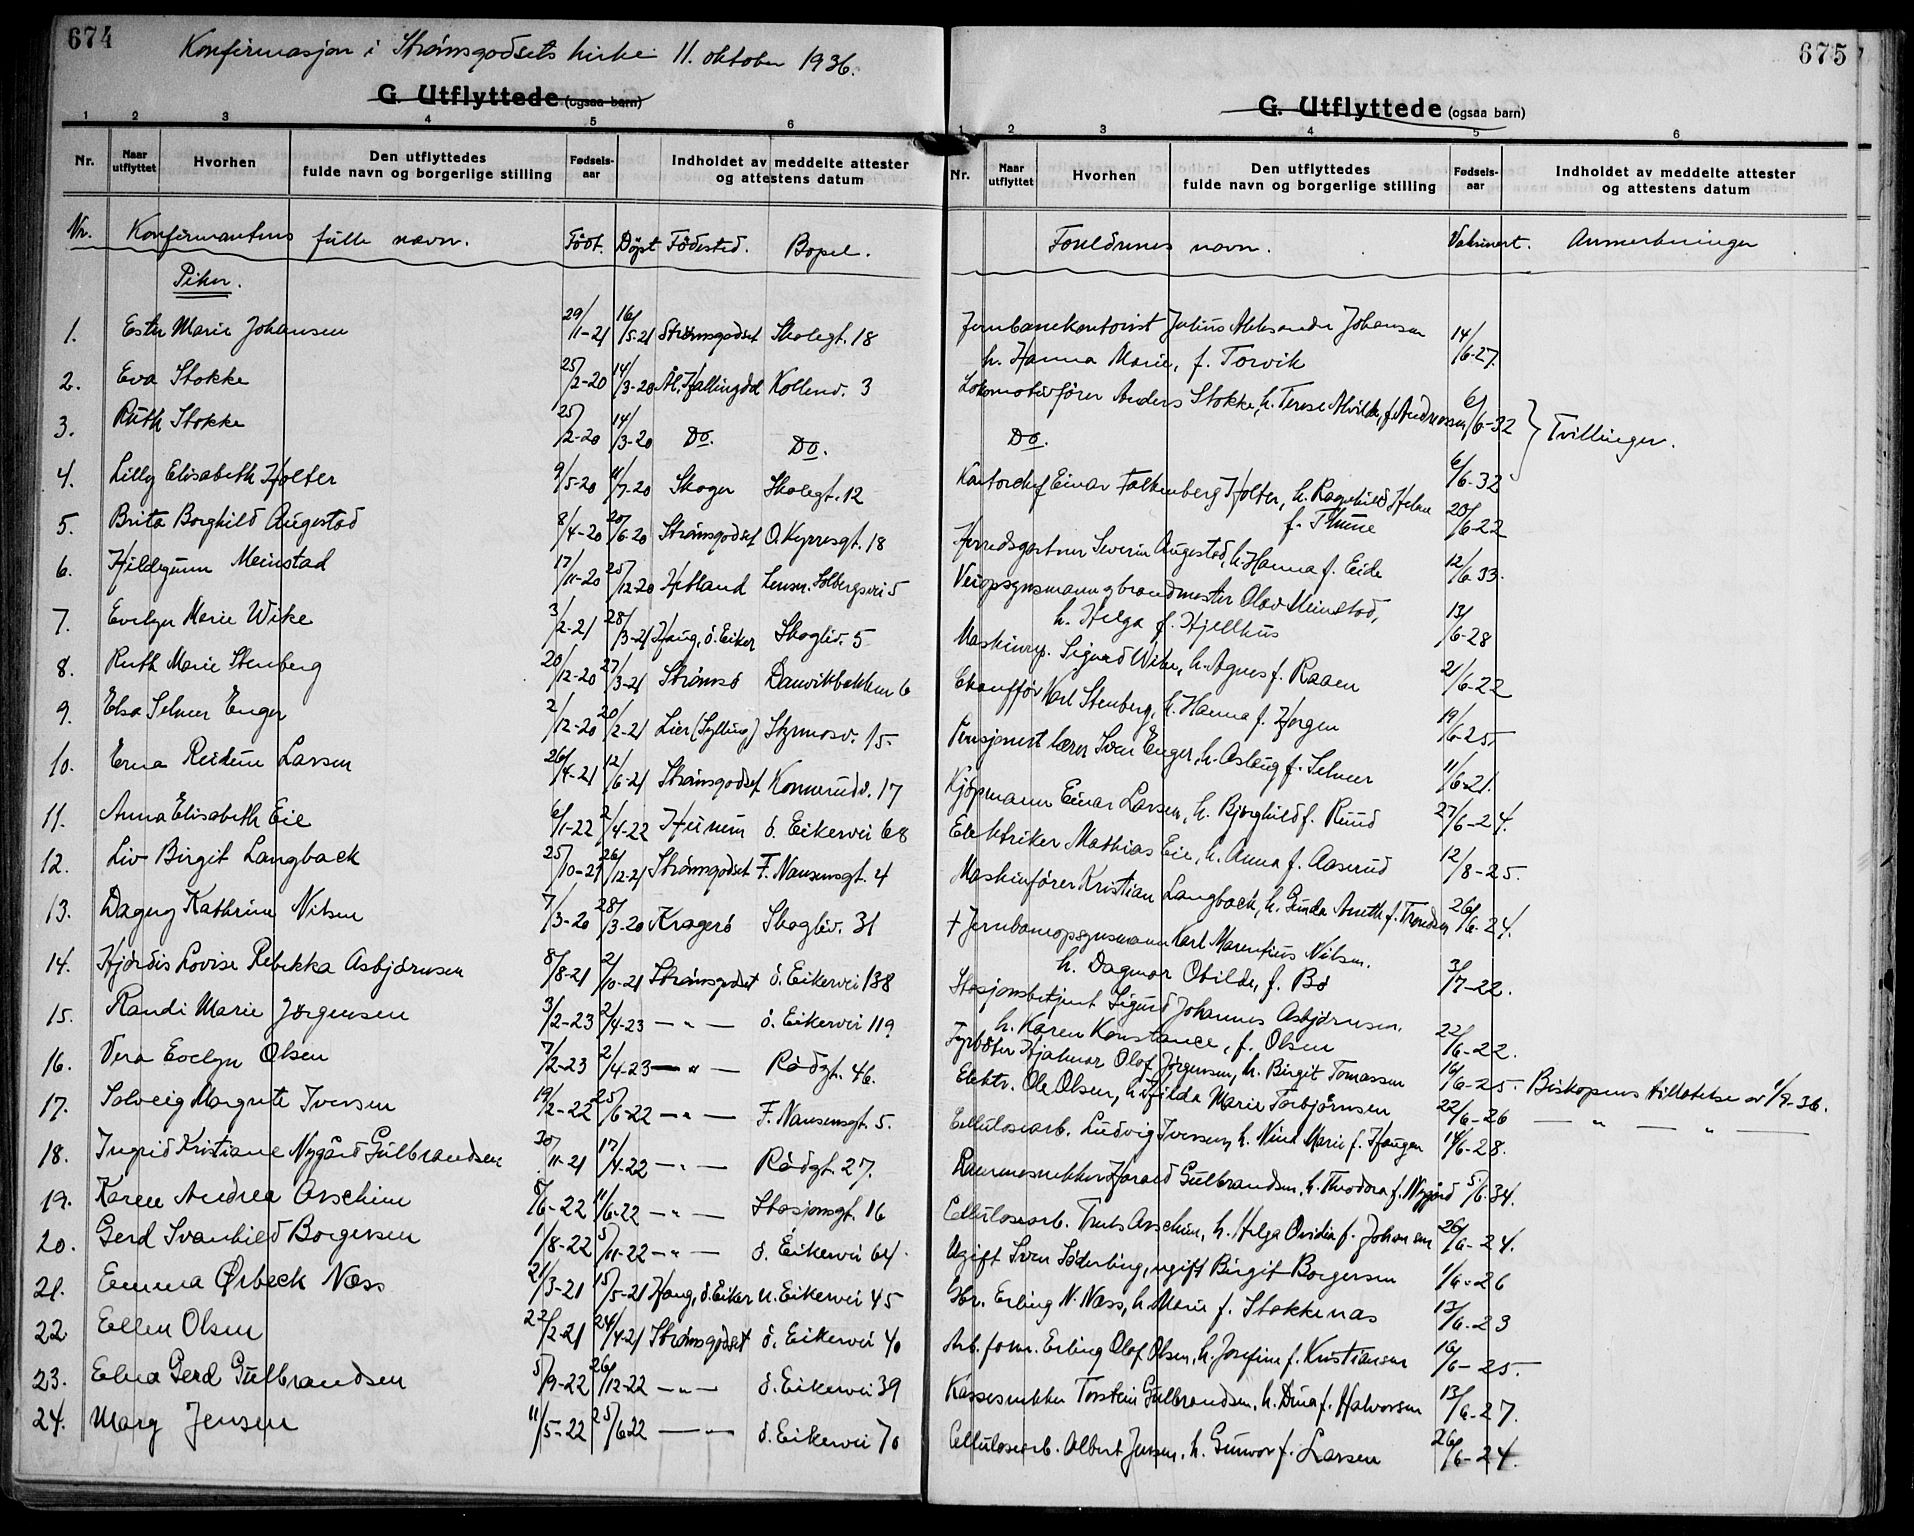 674
Konfirmasjon i Strømsgodsets kirke 11. oktober 1936.
G. Utflyttede (ogsaa barn)
1 2 3 4 5 6
Nr. Naar utflyttet Hvorhen Den utflyttedes fulde navn og borgerlige stilling Fødsels-aar Indholdet av meddelte attester og attestens datum
Nr. Konfirmantens fulle navn. Født. Døpt Fødested. Bopel.
Piker.
1. Ester Marie Johansen 29/11-21 16/5-21 Strømsgodset Skolegt. 18
2. Eva Stokke 25/2-20 14/3-20 Ål, Hallingdal Kollenv. 3
3. Ruth Stokke 25/2-20 14/3-20 Do. Do.
4. Lilly Elisabeth Holter 9/5-20 11/7-20 Skoger Skolegt. 12
5. Brita Borghild Augestad 8/4-20 20/6-20 Strømsgodset O. Kyrresgt. 18
6. Hildegunn Meinstad 17/11-20 25/12-20 Hetland Lensm. Solbergsvei 5
7. Evelyn Marie Wike 3/2-21 28/3-21 Haug, ø. Eiker Skogliv. 5
8. Ruth Marie Stenberg 20/12-20 27/3-21 Strømsø Danvikbakken 6
9. Elsa Selmer Enger 2/12-20 20/2-21 Lier (Sylling) Styrmosv. 15
10. Erna Reidun Larsen 26/4-21 12/6-21 Strømsgodset Konnerudv. 17
11. Anna Elisabeth Eie 6/1-22 2/4-22 Hurum ø. Eikervei 68
12. Liv Birgit Langback 25/10-21 26/12-21 Strømsgodset F. Nansensgt. 4
13. Dagny Kathrine Nilsen 7/3-20 28/3-20 Kragerø Skogliv. 31
14. Hjørdis Lovise Rebekka Asbjørnsen 8/8-21 2/10-21 Strømsgodset ø. Eikervei 138
15. Randi Marie Jørgensen 3/2-23 2/4-23 — " — ø. Eikervei 119
16. Vera Evelyn Olsen 7/2-23 2/4-23 — " — Rådgt. 46.
17. Solveig Margrete Iversen 19/2-22 25/6-22 — " — F. Nansensgt. 5.
18. Ingrid Kristiane Nygård Gulbrandsen 30/11-21 17/4-22 — " — Rådgt. 27.
19. Karen Andrea Arschim 8/6-22 11/6-22 — " — Stasjonsgt. 16
20. Gerd Svanhild Borgersen 1/8-22 5/11-22 — " — ø. Eikervei 64
21. Emma Ørbeck Næss 21/3-21 15/5-21 Haug, ø. Eiker n. Eikervei 45
22 Ellen Olsen 22/2-21 24/4-21 Strømsgodset ø. Eikervei 40
23. Edna Gerd Gulbrandsen 5/9-22 26/12-22 — " — ø. Eikervei 39
24. Mary Jensen 11/5-22 25/6-22 — " — ø. Eikervei 70
675
G. Utflyttede (ogsaa barn)
1 2 3 4 5 6
Nr. Naar utflyttet Hvorhen Den utflyttedes fulde navn og borgerlige stilling Fødsels-aar Indholdet av meddelte attester og attestens datum
Foreldrenes navn. Vaksinert. Anmerkninger
Jernbanekontorist Julius Aleksander Johansen
h. Hanna Marie, f. Torvik 14/6-27.
Lokomotivfører Anders Stokke, h. Terese Alvilde, f. Andreassen 6/6-32 } Tvillinger.
Do. 6/6-32
Kontorchef Einar Falkenberg Holter, h. Ragnhild Helene
f. Thune 20/6-22
Herredsgartner Severin Augestad, h. Hanna f. Eide 12/6-33.
Veiopsynsmann og brandmester Olav Meinstad,
h. Helga f. Hjellhus 13/6-28
Maskinrep. Sigurd Wike, h. Agnes f. Raaen 21/6-22
Chauffør Karl Stenberg, h. Hanna f. Horgen 19/6-25
Pensjonert lærer Sven Enger, h. Aslaug f. Selmer 11/6-21.
Kjøpmann Einar Larsen, h. Bjørghild f. Ruud 27/6-24.
Elektriker Mathias Eie, h. Anna f. Aaserud 12/8-25.
Maskinfører Kristian Langback, h. Gunda Aneth f. Trondsen 26/6-24.
+ Jernbaneopsynsmann Karl Marentius Nilsen.
h. Dagmar Otilde, f. Bø 3/7-22.
Stasjonsbetjent Sigurd Johannes Asbjørnsen.
h. Karen Konstance, f. Olsen 22/6-22.
Fyrbøter Hjalmar Olaf Jørgensen, h. Birgit Tomassen 16/6-25. Biskopens tillatelse av 1/9-36.
Elektr. Ole Olsen, h. Hilda Marie Torbjørnsen 22/6-26 — " — " —
Cellulosearb. Ludvig Iversen, h. Nina Marie f. Haugen 14/6-28.
Rammesnekker Harald Gulbrandsen, h. Theodora f. Nygård 5/6-34.
Cellulosearb. Truls Arschim, h. Helga Ovidia f. Johansen 26/6-24.
Ugift Sven Söderling, ugift Birgit Borgersen 1/6-26
Gbr. Erling N. Næss, h. Marie f. Stokkenæs 13/6-23
Arb.form. Erling Olaf Olsen, h. Josefine f. Kristiansen 16/6-25.
Kassesnekker Torstein Gulbrandsen, h. Dina f. Halvorsen 13/6-27.
Cellulosearb. Albert Jensen, h. Gunvor f. Larsen 26/6-24.